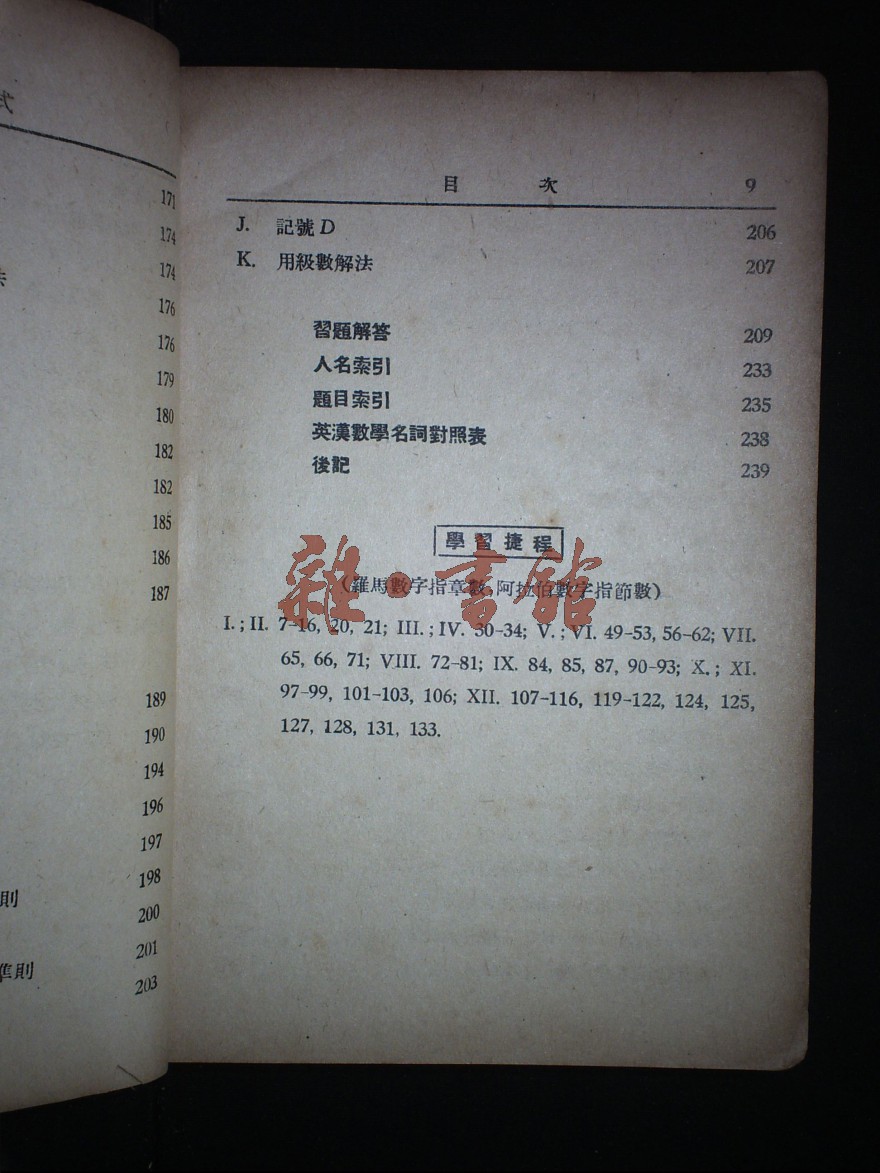 式
171
174
法 174
176
176
179
180
182
182
185
186
187
189
190
194
196
197
198
則 200
201
準則 203
目 次 9
J. 記號 D 206
K. 用級數解法 207
習題解答 209
人名索引 233
題目索引 235
英漢數學名詞對照表 238
後記 239
學習捷程
(羅馬數字指章數,阿拉伯數字指節數)
雜·書館
I.; II. 7-16, 20, 21; III.; IV. 30-34; V.; VI. 49-53, 56-62; VII.
65, 66, 71; VIII. 72-81; IX. 84, 85, 87, 90-93; X.; XI.
97-99, 101-103, 106; XII. 107-116, 119-122, 124, 125,
127, 128, 131, 133.